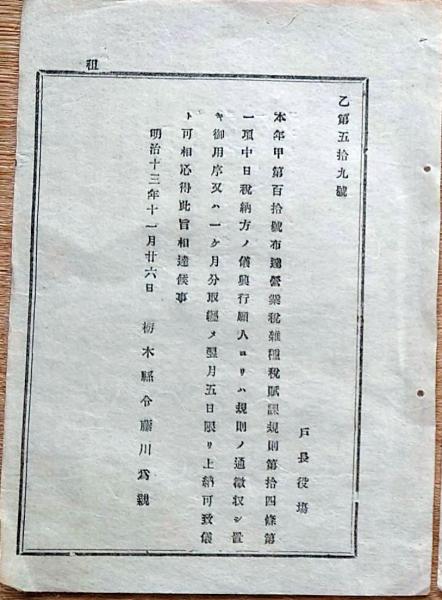 租
乙第五拾九號
戸長役塲
本年甲第百拾號布達營業稅雜種稅賦課規則第拾四條第
一項中日稅納方ノ儀興行願人ヨリハ規則ノ通徵収シ置
キ御用序又ハ一ケ月分取纒メ翌月五日限リ上納可致儀
ト可相心得此旨相達候事
明治十三年十一月廿六日
栃木縣令藤川為親